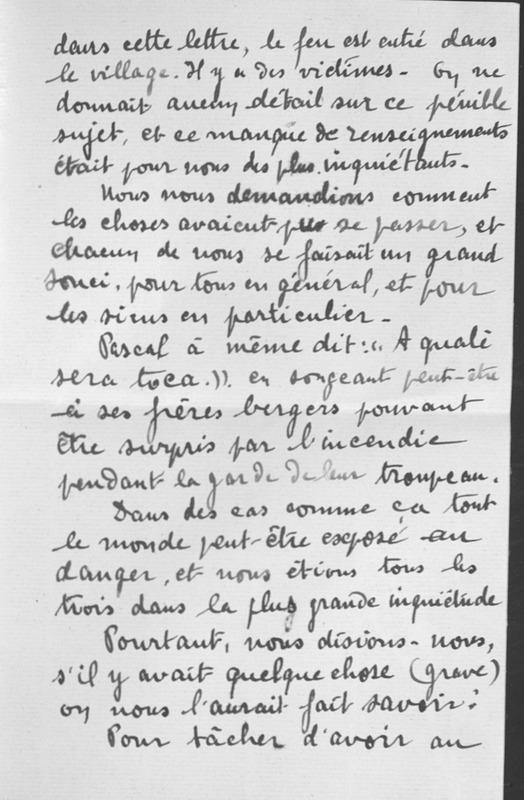 dans cette lettre, le feu est entré dans
le village. Il y a des victimes - On ne
donnait aucun détail sur ce pénible
sujet, et ce manque de renseignements
était pour nous des plus inquiétants -
Nous nous demandions comment
les choses avaient pu se passer, et
chacun de nous se faisait un grand
souci, pour tous en général, et pour
les siens en particulier -
Pascal à même dit : "A qualè
sera toca." en songeant peut-être
à ses frères bergers pouvant
être surpris par l'incendie
pendant la garde de leur troupeau.
Dans des cas comme ça tout
le monde peut-être exposé au
danger, et nous étions tous les
trois dans la plus grande inquiétude
Pourtant, nous disions-nous,
s'il y avait quelque chose (grave)
on nous l'aurait fait savoir :
Pour tâcher d'avoir au